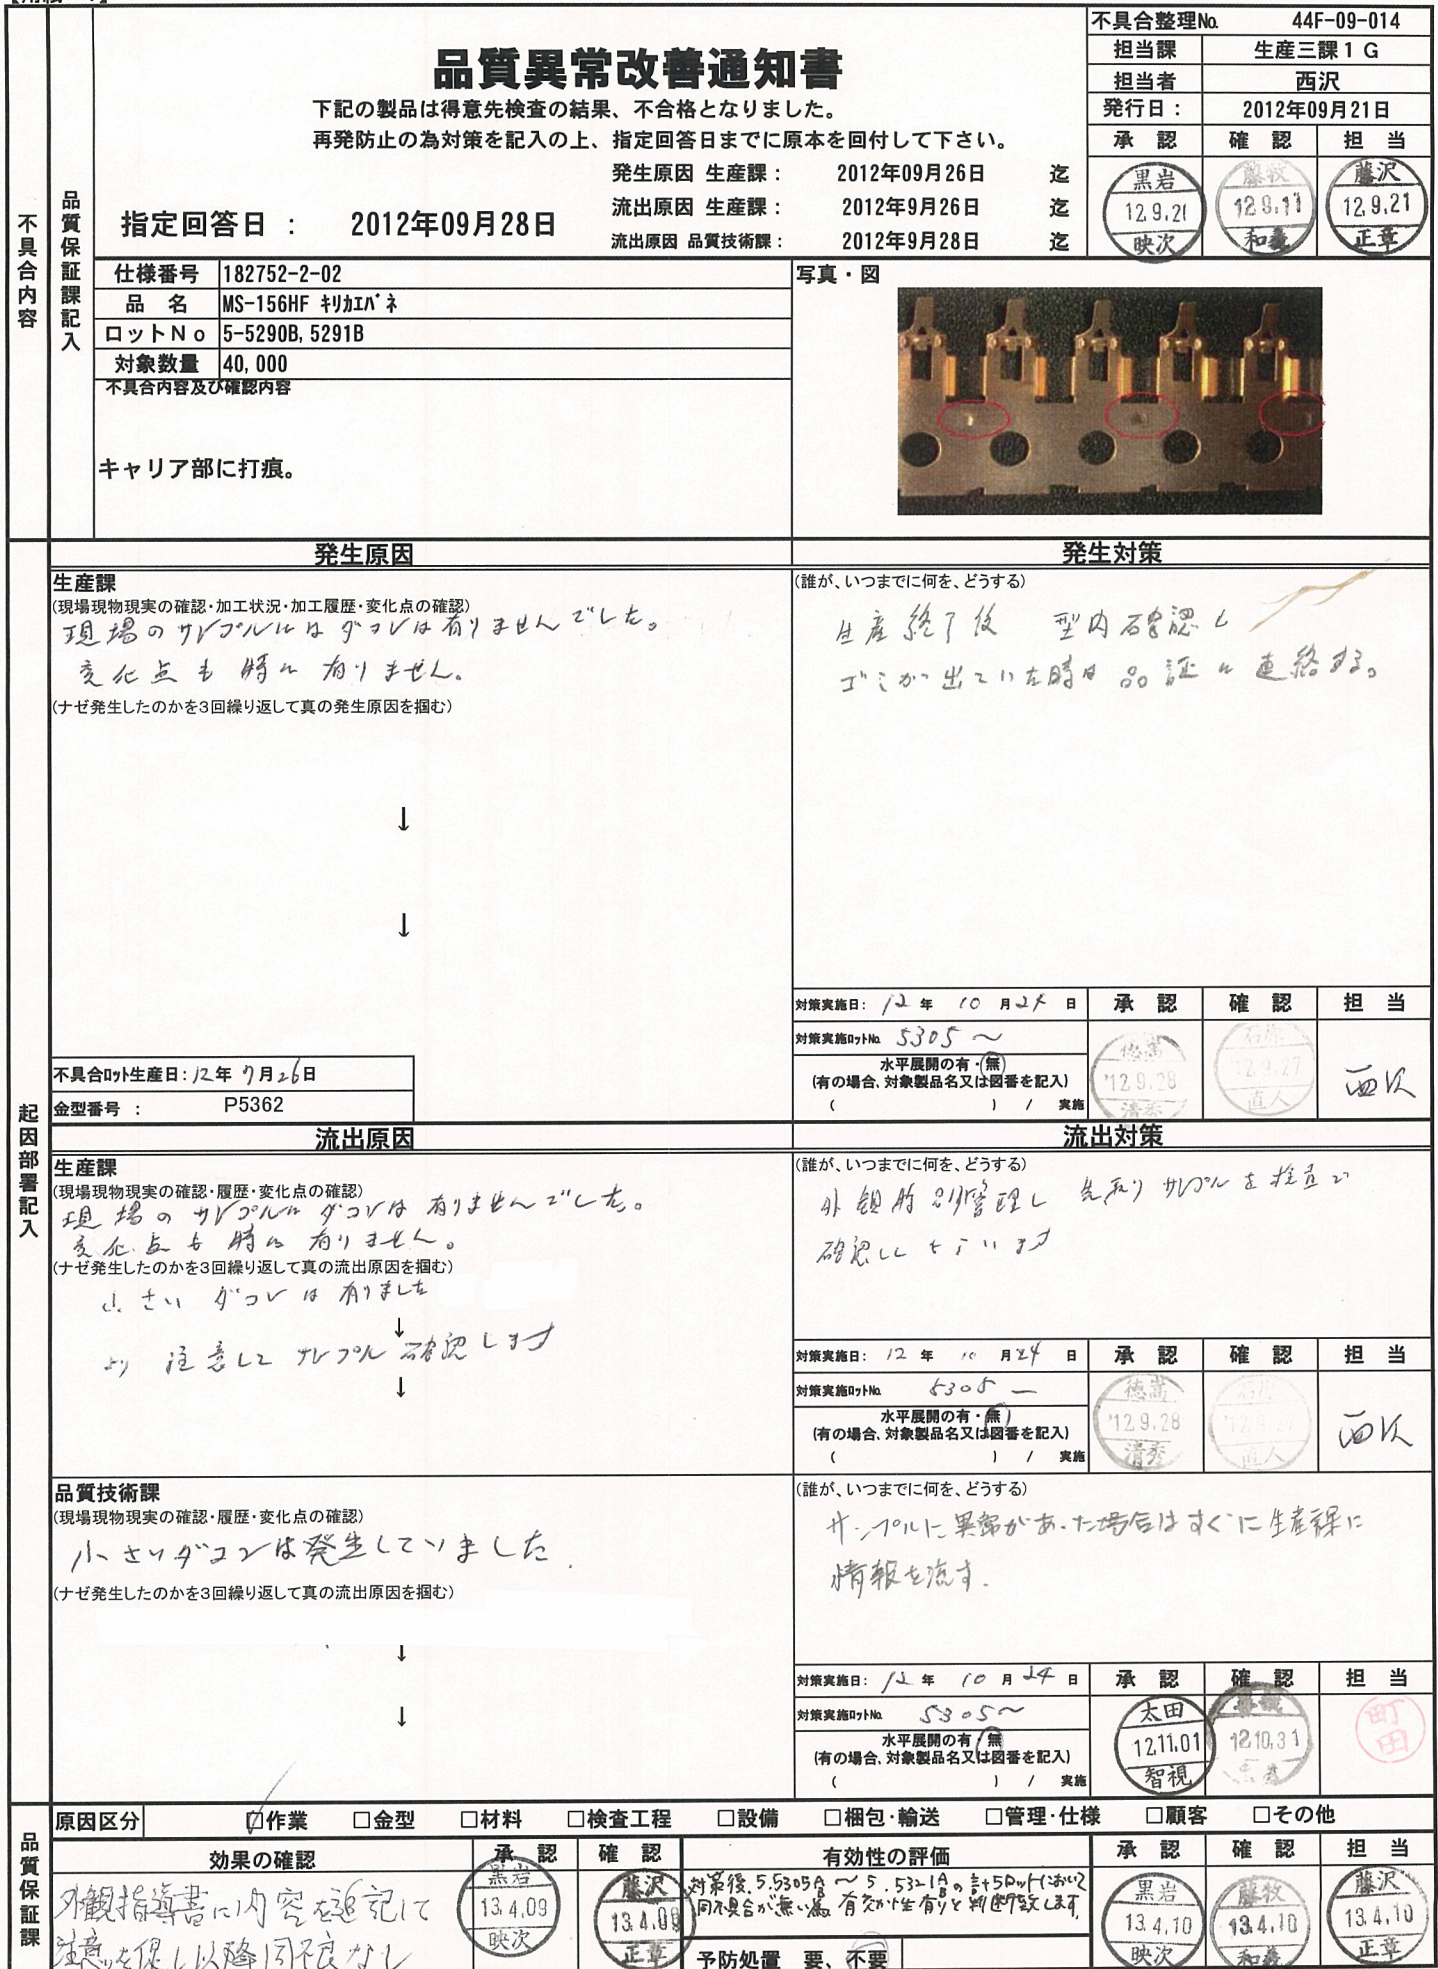 不具合整理No. 44F-09-014
担当課 生産三課1G
担当者 西沢
発行日: 2012年09月21日
承認 確認 担当
黒岩 12.9.21 映次
藤牧 和義
藤沢 12.9.21 正章
品質異常改善通知書
下記の製品は得意先検査の結果、不合格となりました。
再発防止の為対策を記入の上、指定回答日までに原本を回付して下さい。
発生原因 生産課: 2012年09月26日 迄
流出原因 生産課: 2012年9月26日 迄
流出原因 品質技術課: 2012年9月28日 迄
指定回答日 : 2012年09月28日
不具合内容
品質保証課記入
仕様番号 182752-2-02
品 名 MS-156HF キリカエバネ
ロットNo 5-5290B, 5291B
対象数量 40,000
不具合内容及び確認内容
キャリア部に打痕。
写真・図
起因部署記入
発生原因
発生対策
生産課
(現場現物現実の確認・加工状況・加工履歴・変化点の確認)
現場のサンプルにはダコンは有りませんでした。
変化点も特に有りません。
(ナゼ発生したのかを3回繰り返して真の発生原因を掴む)
↓
↓
不具合ロット生産日: 12年 7月26日
金型番号 : P5362
(誰が、いつまでに何を、どうする)
生産終了後 型内確認し
ゴミが出ていた時は品証に連絡する。
対策実施日: 12年 10月24日
対策実施ロットNo. 5305〜
水平展開の有・無
(有の場合、対象製品名又は図番を記入)
( ) / 実施
承認 確認 担当
徳嵩 '12.9.28 清秀
石原 '12.9.27 直人
西沢
流出原因
流出対策
生産課
(現場現物現実の確認・履歴・変化点の確認)
現場のサンプルにダコンは有りませんでした。
変化点も特に有りません。
(ナゼ発生したのかを3回繰り返して真の流出原因を掴む)
小さいダコンは有りました
↓
より注意してサンプル確認します
↓
(誰が、いつまでに何を、どうする)
外観 別管理し 先取りサンプルを検査で
確認して
対策実施日: 12年 10月24日
対策実施ロットNo. 5305 ー
水平展開の有・無
(有の場合、対象製品名又は図番を記入)
( ) / 実施
承認 確認 担当
徳嵩 '12.9.28 清秀
石原 '12.9.27 直人
西沢
品質技術課
(現場現物現実の確認・履歴・変化点の確認)
小さいダコンは発生していました.
(ナゼ発生したのかを3回繰り返して真の流出原因を掴む)
↓
↓
(誰が、いつまでに何を、どうする)
サンプルに異常があった場合はすぐに生産課に
情報を流す.
対策実施日: 12年 10月24日
対策実施ロットNo. 5305〜
水平展開の有・無
(有の場合、対象製品名又は図番を記入)
( ) / 実施
承認 確認 担当
太田 12.11.01 智視
12.10.31
町田
品質保証課
原因区分 □作業 □金型 □材料 □検査工程 □設備 □梱包・輸送 □管理・仕様 □顧客 □その他
効果の確認
外観指導書に内容を追記して
注意を促し以降同不良なし
承認 確認
黒岩 13.4.09 映次
藤沢 13.4.09 正章
有効性の評価
対策後、5.5305A/B〜5.5321A/Bの計+5ロットにおいて
同不具合が無い為、有効性有りと判断致します。
予防処置 要、不要
承認 確認 担当
黒岩 13.4.10 映次
藤牧 13.4.10 和義
藤沢 13.4.10 正章